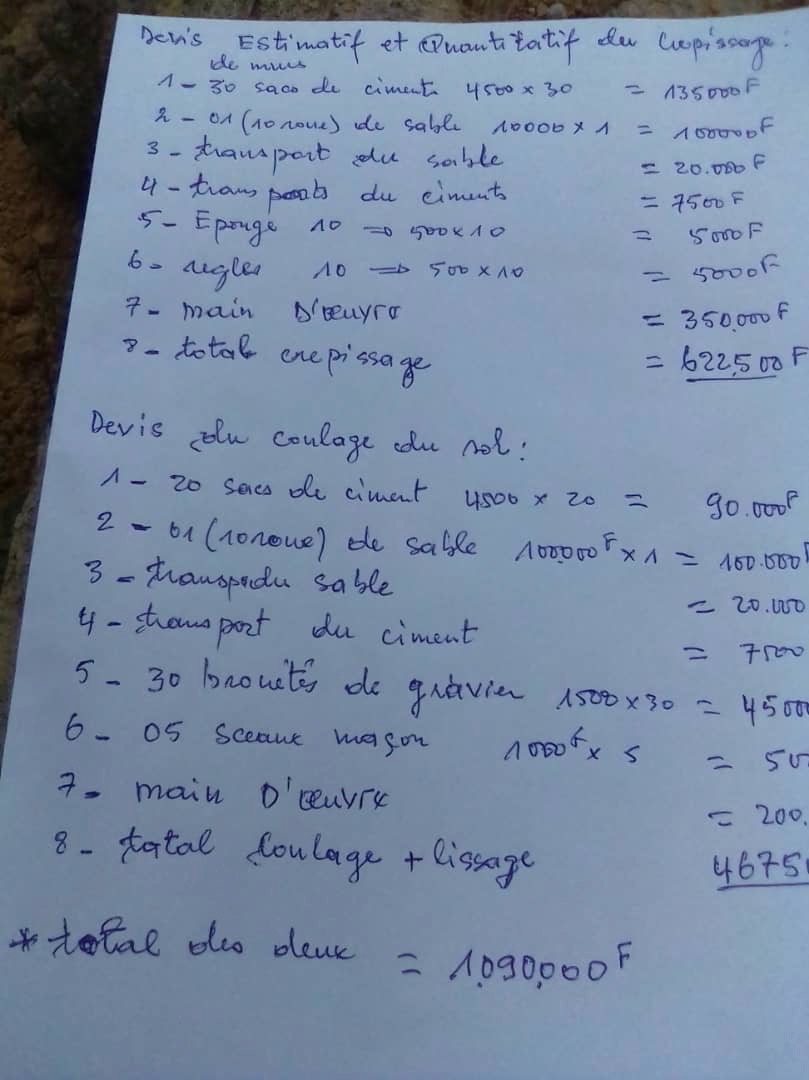 Devis Estimatif et Quantitatif du Crepissage :
de murs
1 - 30 sacs de ciments 4500 x 30 = 135000F
2 - 01 (10 roue) de sable 10000 x 1 = 100000F
3 - transport du sable = 20.000 F
4 - transports du ciments = 7500 F
5 - Eponge 10 => 500 x 10 = 5000F
6 - regles 10 => 500 x 10 = 5000F
7 - main D'œuvre = 350,000 F
8 - total crepissage = 622,500 F
Devis du coulage du sol :
1 - 20 sacs de ciment 4500 x 20 = 90.000F
2 - 01 (10 roue) de sable 100,000F x 1 = 100.000F
3 - sable = 20.000
4 - transport du ciment = 7500
5 - 30 brouetés de gravier 1500 x 30 = 45000
6 - 05 sceaux maçon 1000F x 5 = 50
7 - main D'œuvre = 200.
8 - total Coulage + lissage 4675
* total des deux = 1,090,000 F